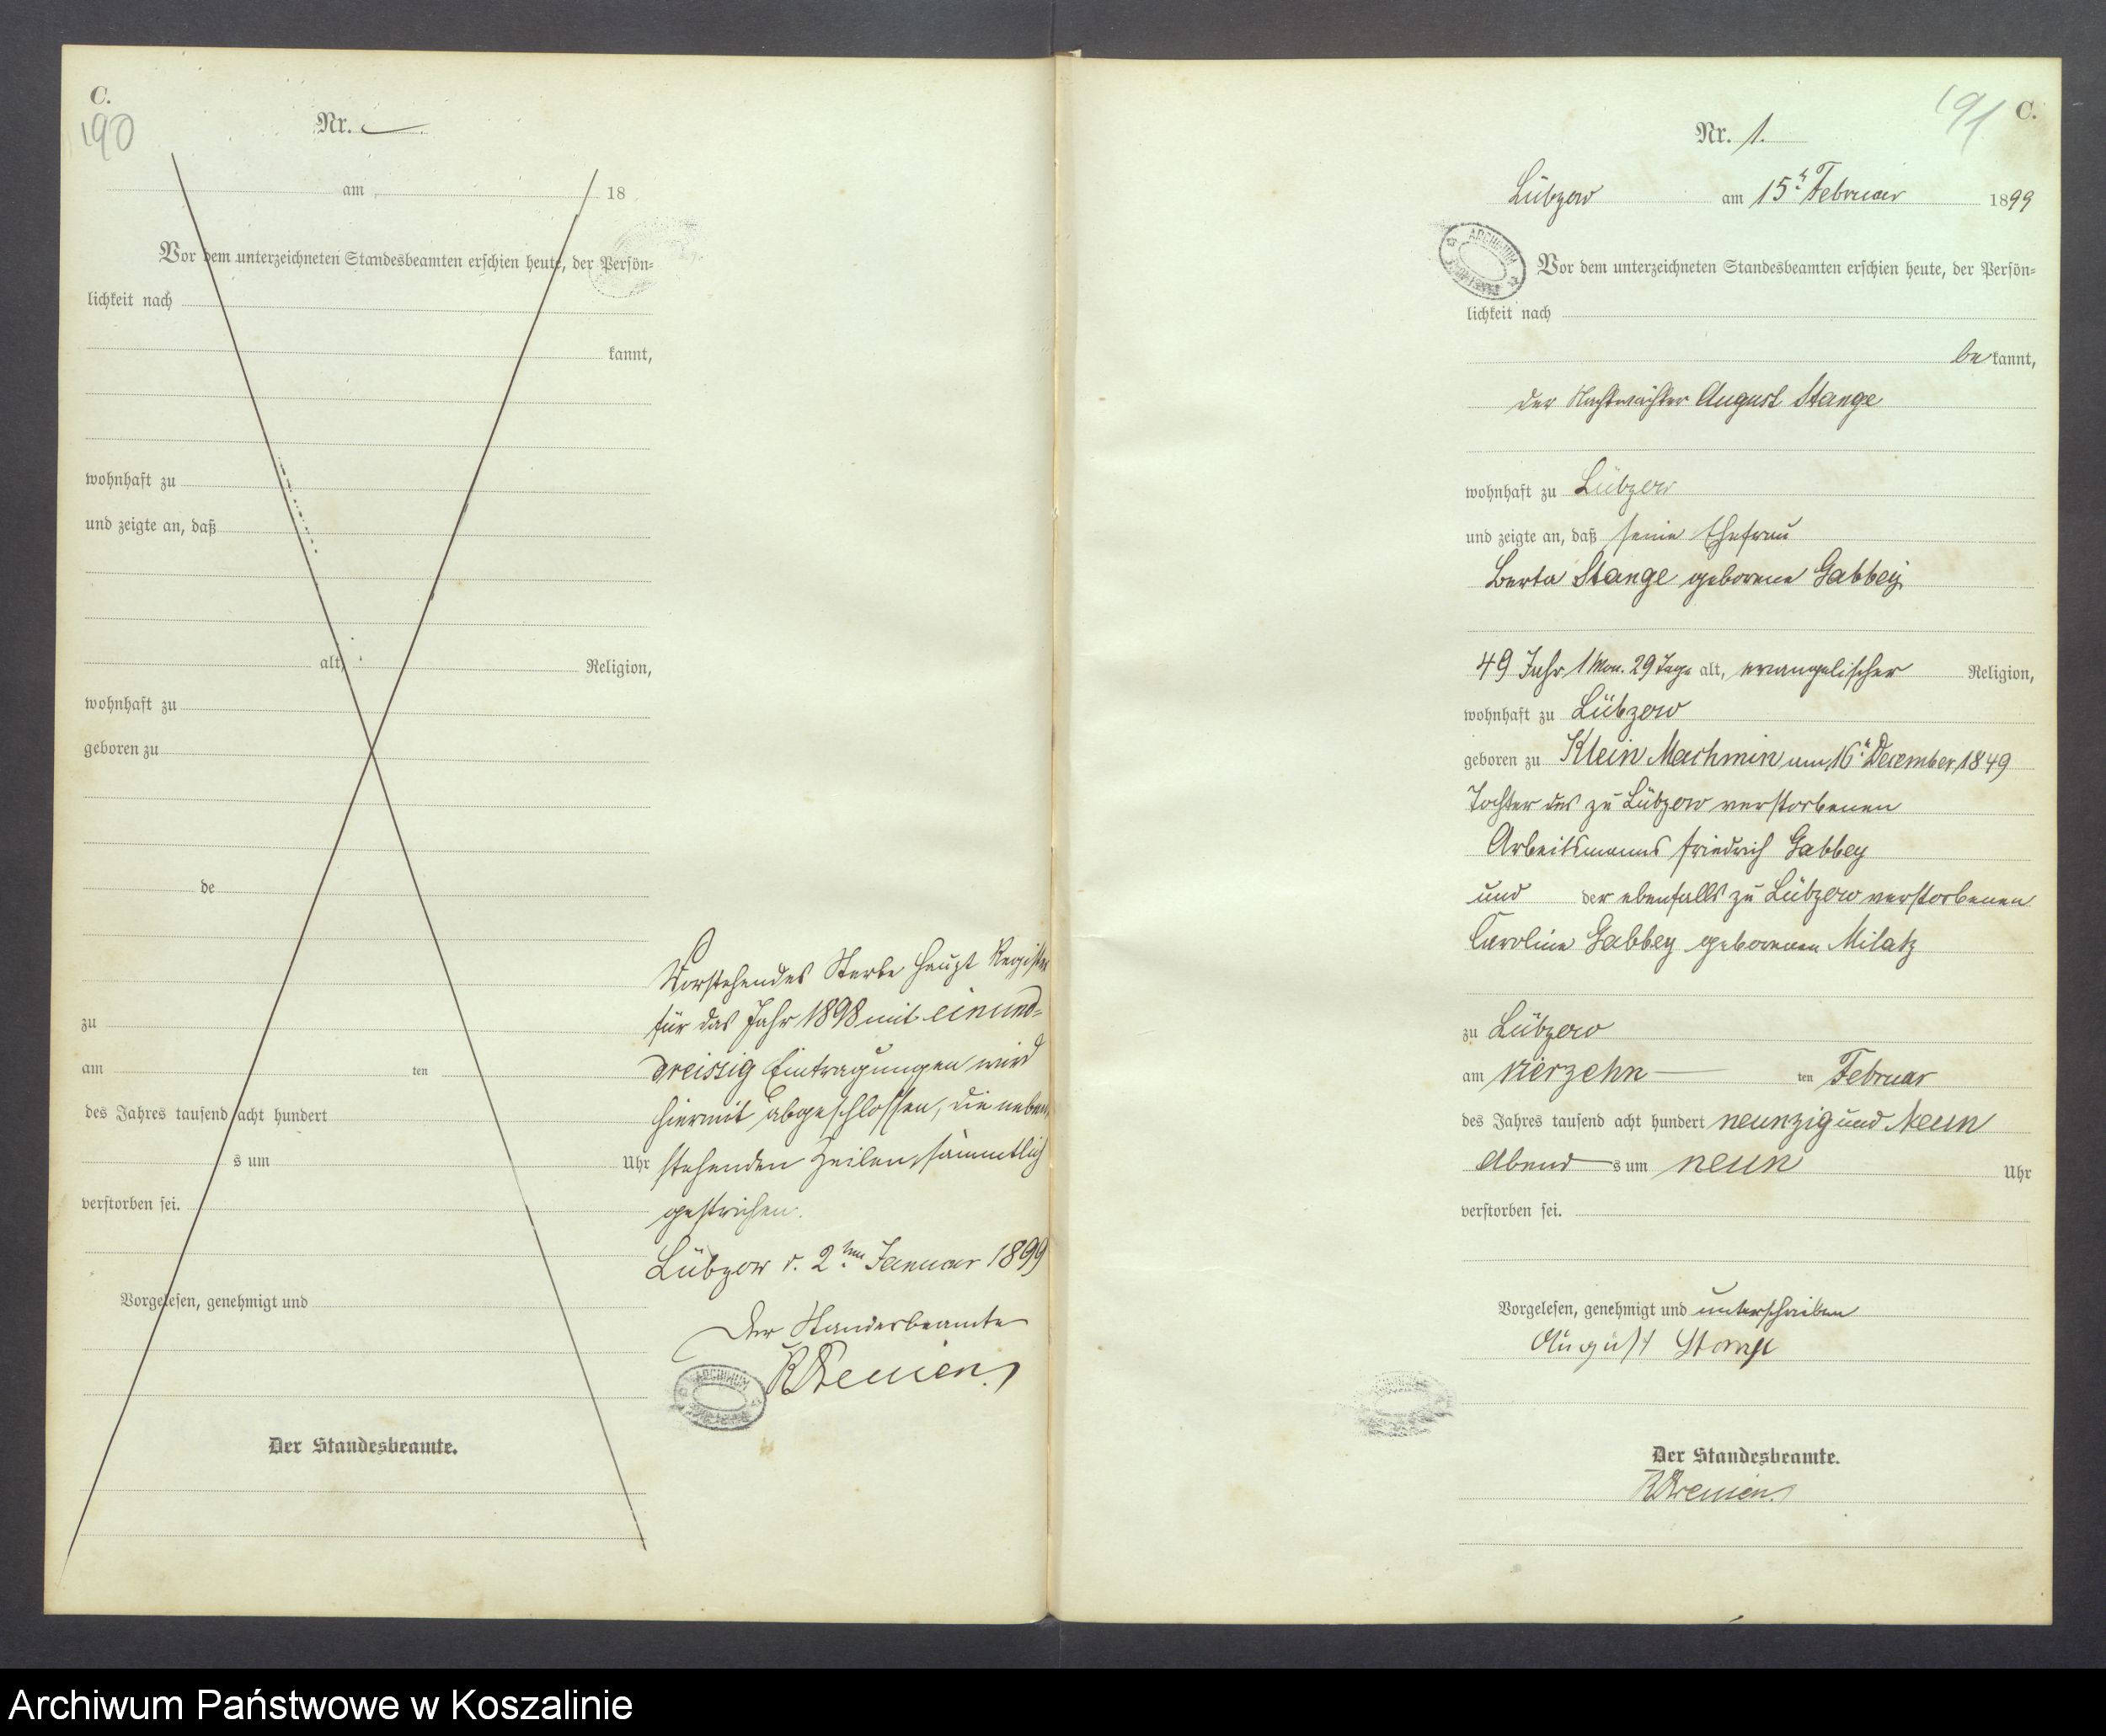 C.
190
Nr.
am 18
Vor dem unterzeichneten Standesbeamten erschien heute, der Persön=
lichkeit nach
kannt,
wohnhaft zu
und zeigte an, daß
alt, Religion,
wohnhaft zu
geboren zu
de
zu
am ten
des Jahres tausend acht hundert
s um Uhr
verstorben sei.
Vorgelesen, genehmigt und
Der Standesbeamte.
Vorstehendes Sterbe Haupt Register
für das Jahr 1898 mit einund=
dreissig Eintragungen wird
hiermit abgeschlossen, die neben
stehenden Zeilen sämmtlich
gestrichen.
Lübzow d. 2ten Januar 1899
Der Standesbeamte
ARCHIWUM
191
C.
Nr. 1.
Lübzow am 15t Februar 1899
ARCHIWUM
Vor dem unterzeichneten Standesbeamten erschien heute, der Persön=
lichkeit nach
be kannt,
der Nachtwächter August Stange
wohnhaft zu Lübzow
und zeigte an, daß seine Ehefrau
Berta Stange geborene Gabbey
49 Jahr 1 Mon. 29 Tage alt, evangelischer Religion,
wohnhaft zu Lübzow
geboren zu Klein Machmin am 16t December 1849
Tochter des zu Lübzow verstorbenen
Arbeitsmanns Friedrich Gabbey
und der ebenfalls zu Lübzow verstorbenen
Caroline Gabbey geborenen Milatz
zu Lübzow
am vierzehn ten Februar
des Jahres tausend acht hundert neunzig und Neun
Abend s um neun Uhr
verstorben sei.
Vorgelesen, genehmigt und unterschrieben
August Stange
Der Standesbeamte.
Archiwum Państwowe w Koszalinie